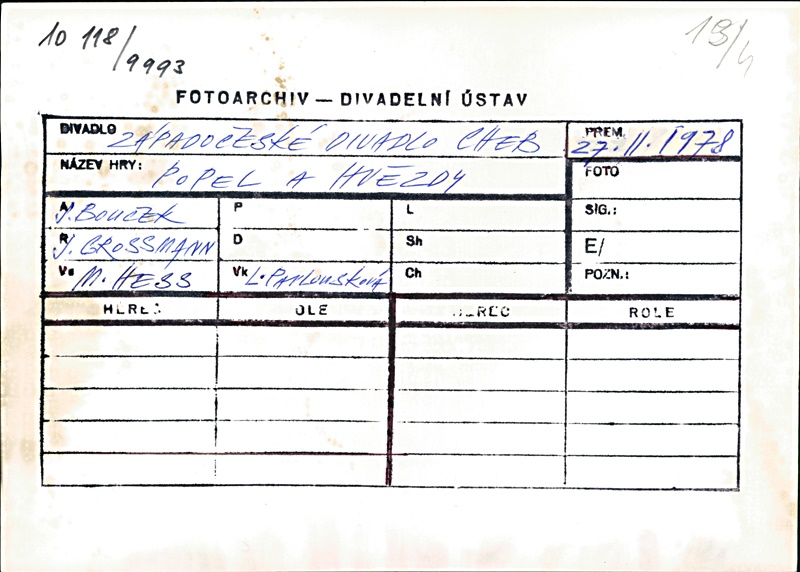 10 118/9993
13/4
FOTOARCHIV — DIVADELNÍ ÚSTAV
DIVADLO ZÁPADOČESKÉ DIVADLO CHEB
PREM. 27. II. 1978
NÁZEV HRY: POPEL A HVĚZDY
FOTO
A J. BOUČEK P L SIG.:
R J. GROSSMANN D Sh E/
Vs M. HESS Vk L. PAVLOUSKOVÁ Ch POZN.:
HEREC OLE HEREC ROLE